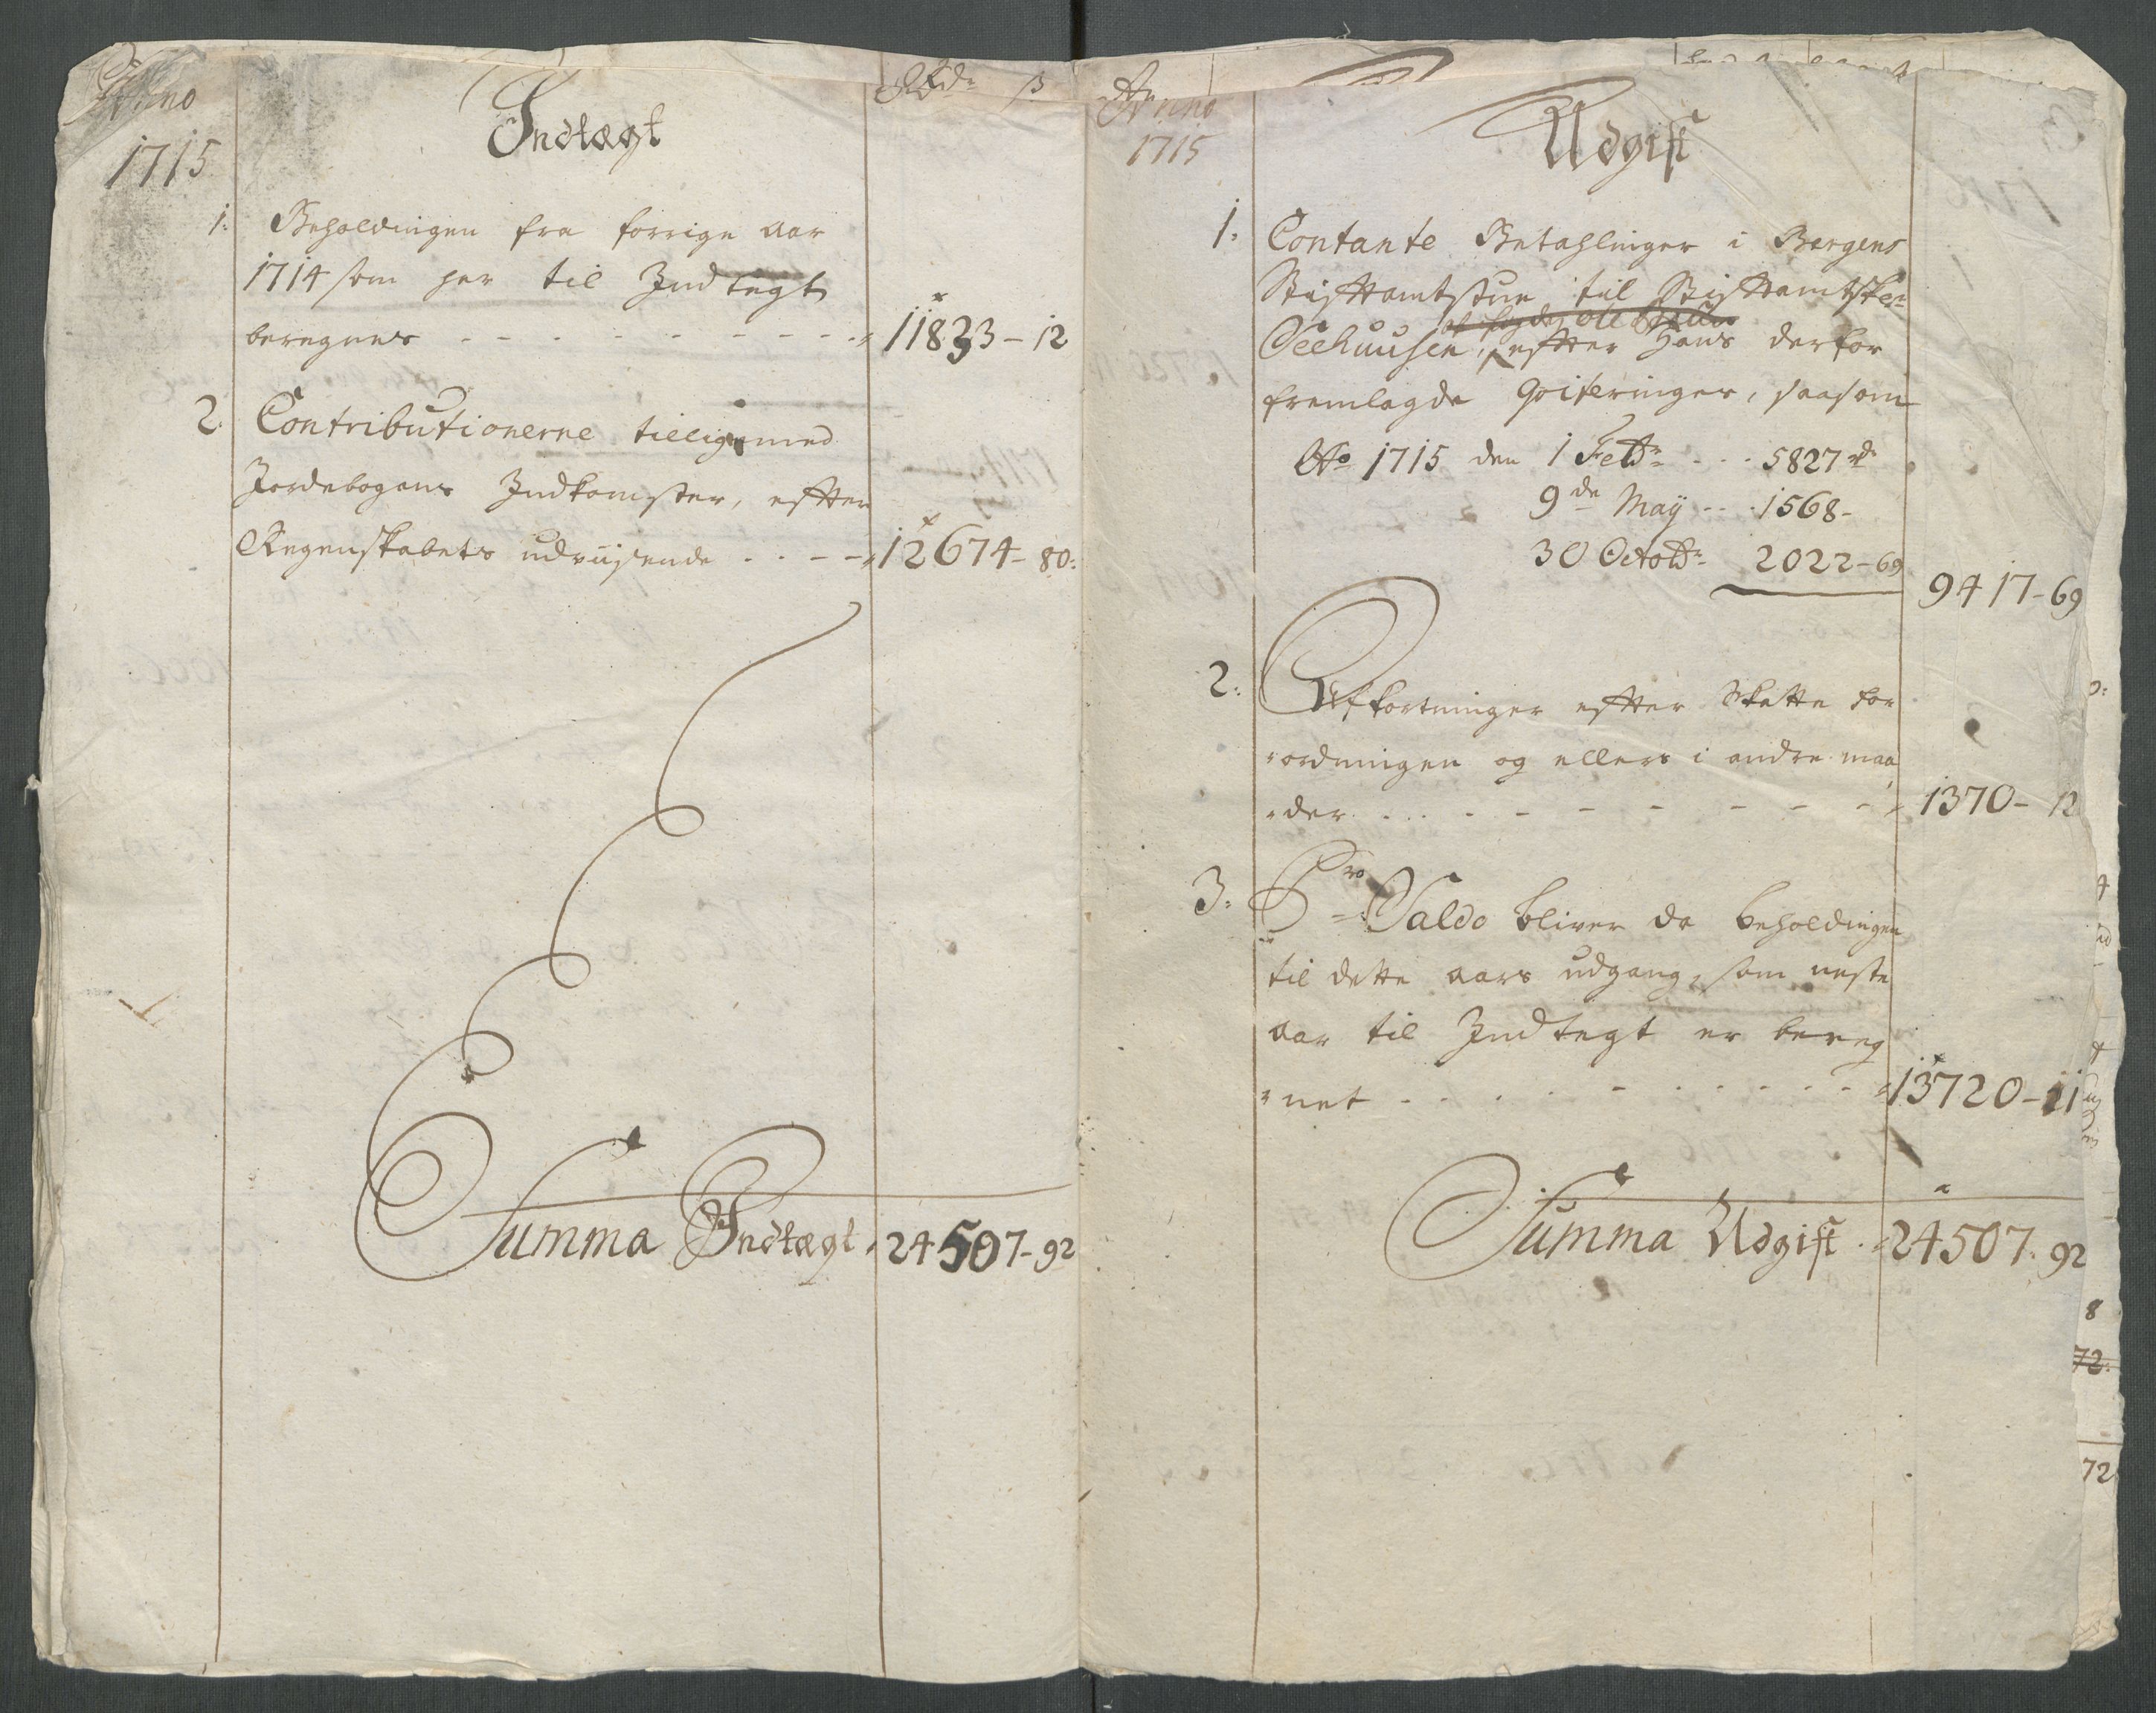 Anno
1715
Indtægt
Rdr ß
1. Beholdingen fra forrige aar
1714 som her til Indtegt
beregnes - - - - - - - - 11833 - 12
2. Contributionerne tilligemed
Jordebogens Indkomster, efter
Regenskabets udviisende . . - - 12674 - 80:
Summa Indtægt 24507 - 92
Anno
1715
Udgift
1. Contante Betahlinger i Bergens
Stiftamtstue til Stiftamtskr
Seehuusen, efter Hans derfor
fremlagde Qviteringer, saasom
Ao 1715 den 1 Febr - - - 5827 rdr
9de Maÿ - - - 1568 -
30 Octobr - 2022 - 69
9417 - 69
2. Afkortninger efter Skatte for
ordningen og ellers i andre maa
der . . . - - - - - - - 1370 - 12
3. Pro Saldo bliver da beholdingen
til dette aars udgang, som neste
aar til Indtegt er bereg
net - - . . . - - - - - 13720 - 11
Summa Udgift . 24507. 92
8
72.
72